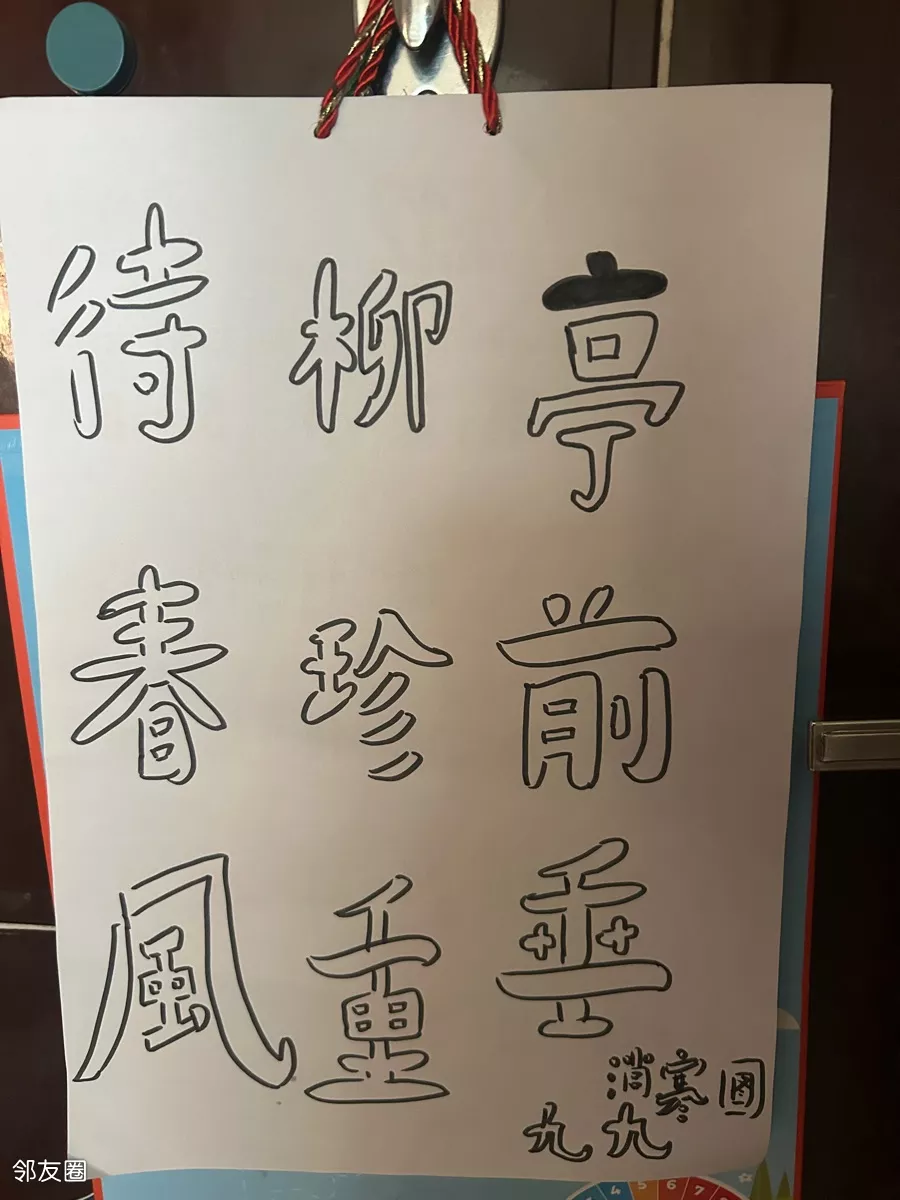 亭前垂
柳珍重
待春風
九九
消寒圖
4 5 6 7
邻友圈